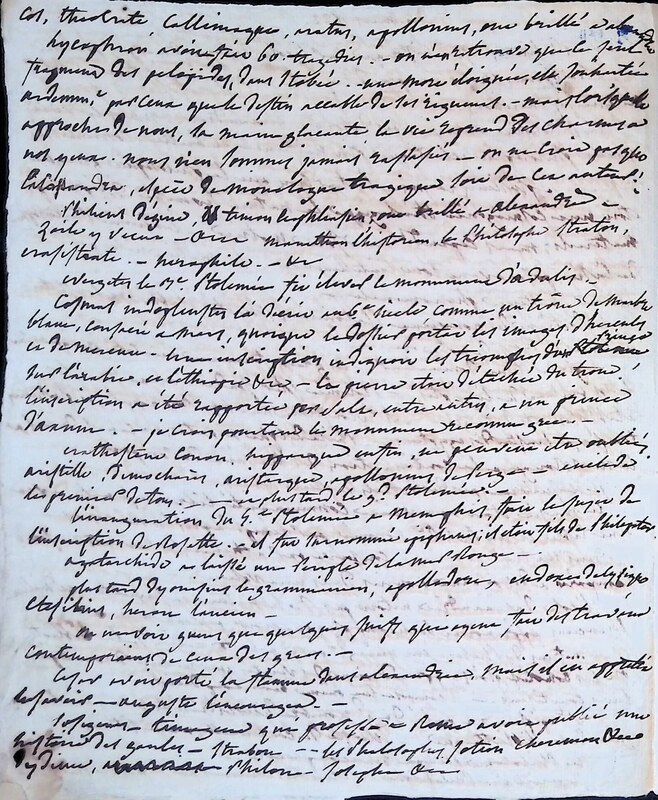 Cos, théocrite Callimaque, aratus, apollonius, ont brillé a
lycophron avait fait 60 tragédies. - on n'en trouve que le seul
fragment des pelopides, dans Stobée. - une mort éloignée, est souhaitée
ardemmt par ceux que le destin accable de ses rigueurs. - mais lorsqu'elle
approche de nous, la main glacante la vie reprend des charmes a
nos yeux. nous n'en sommes jamais rassasiés - on ne croit pas que
Cassandra, espèce de monologue tragique soit de cet auteur.
Philicus d'égine, timon ont brillé a alexandrie -
Zoile y vécut - &c manethon l'historien, le philosophe straton,
erasistrate. - herophile. - &c
evergetes le Ptolemée fit élever le monument d'adulis. -
Cosmas indopleustes l'a décrit au 6e siecle comme un trône de marbre
blanc, consacré a mars, quoique le dossier portât les images d'hercule
et de mercure - une inscription indiquait les triomphes du
sur l'arabie, et l'éthiopie &c - la pierre était détachée du trône,
l'inscription a été rapportée par Salt, entre autres, a un prince
d'axum. - je crois pourtant le monument reconnu grec. -
eratosthene Conon, hipparque enfin, ne peuvent être oubliés
aristille, aristarque, apollonius de Perge - euclide
le premier de tous - et plus tard, le gd Ptolemée. -
l'inauguration du 5e Ptolemée a Memphis, fait le sujet de
l'inscription de rosette. - il fut surnommé epiphane; il était fils de Philopator
agatarchide a laissé un Periple de la mer Rouge. -
plus tard dyonisius le grammairien, apollodore, eudoxe de
Ctesibius, heron l'ancien -
on ne voit guere que quelques juifs qui ayent fait des travaux
contemporains de ceux des grecs. -
Cesar avait porté, la flamme dans alexandrie, mais il en
le savoir - auguste l'encouragea. -
Sosigene - timagene qui professa a Rome avait publié une
histoire des gaules - strabon - - les Philosophes, sotion cheremon &c
dydime, Philon - Joseph &c